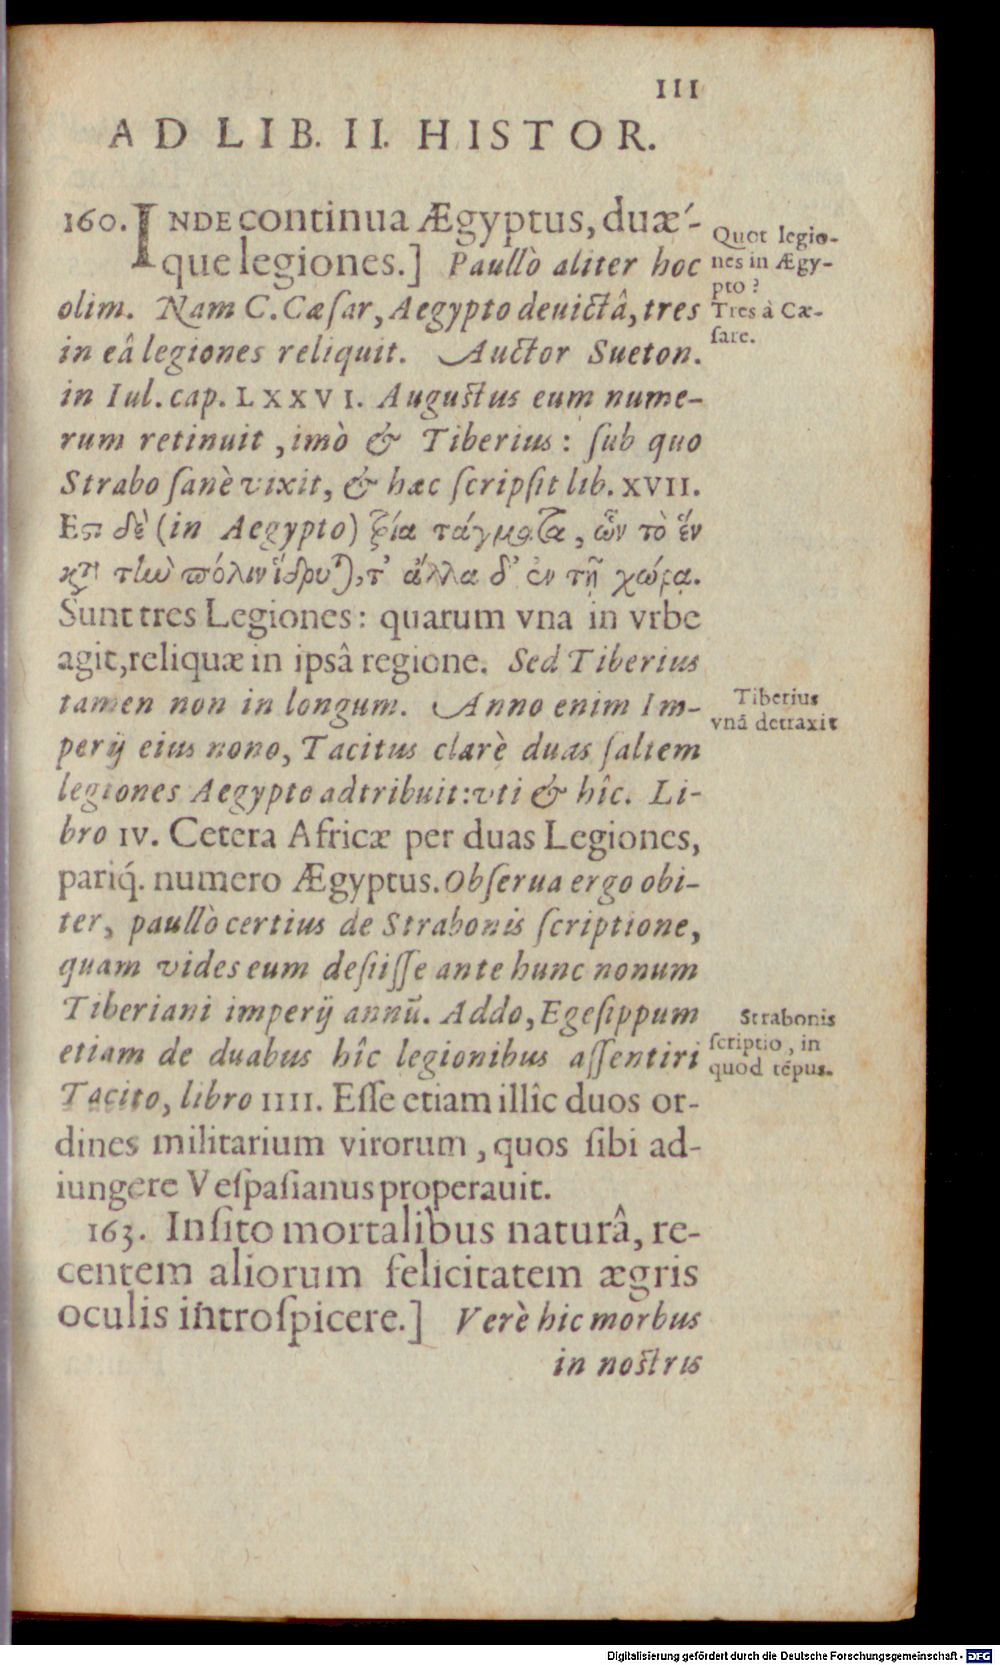 III
AD LIB. II. HISTOR.
160. INDE continua Ægyptus, duæ-
que legiones.] Paullò aliter hoc
olim. Nam C. Cæſar, Aegypto deuictâ, tres
in eâ legiones reliquit. Auctor Sueton.
in Iul. cap. LXXVI. Auguſtus eum nume-
rum retinuit, imò & Tiberius: ſub quo
Strabo ſanè vixit, & hæc ſcripſit lib. XVII.
Εϛι δὲ (in Aegypto) τρία τάγματα, ὧν τὸ ἕν
κτ̀ τὼ πόλιν ἵδρυται, τ’ ἄλλα δ’ ἐν τῇ χώρᾳ.
Sunt tres Legiones: quarum vna in vrbe
agit, reliquæ in ipsâ regione. Sed Tiberius
tamen non in longum. Anno enim Im-
perij eius nono, Tacitus clarè duas ſaltem
legiones Aegypto adtribuit: vti & hîc. Li-
bro IV. Cetera Africæ per duas Legiones,
pariq́. numero Ægyptus. Obſerua ergo obi-
ter, paullò certius de Strabonis ſcriptione,
quam vides eum deſiiſſe ante hunc nonum
Tiberiani imperij annũ. Addo, Egeſippum
etiam de duabus hîc legionibus aſſentiri
Tacito, libro IIII. Eſſe etiam illîc duos or-
dines militarium virorum, quos ſibi ad-
iungere Veſpaſianus properauit.
163. Inſito mortalibus naturâ, re-
centem aliorum felicitatem ægris
oculis introſpicere.] Verè hic morbus
in noſtris
Quot legio-
nes in Ægy-
pto?
Tres à Cæ-
ſare.
Tiberius
vnã detraxit
Strabonis
ſcriptio, in
quod tẽpus.
Digitalisierung gefördert durch die Deutsche Forschungsgemeinschaft - DFG